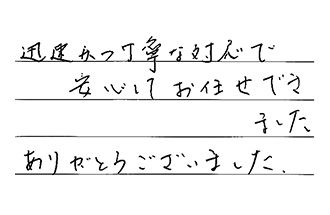 迅速かつ丁寧な対応で
安心してお任せでき
ました
ありがとうございました.